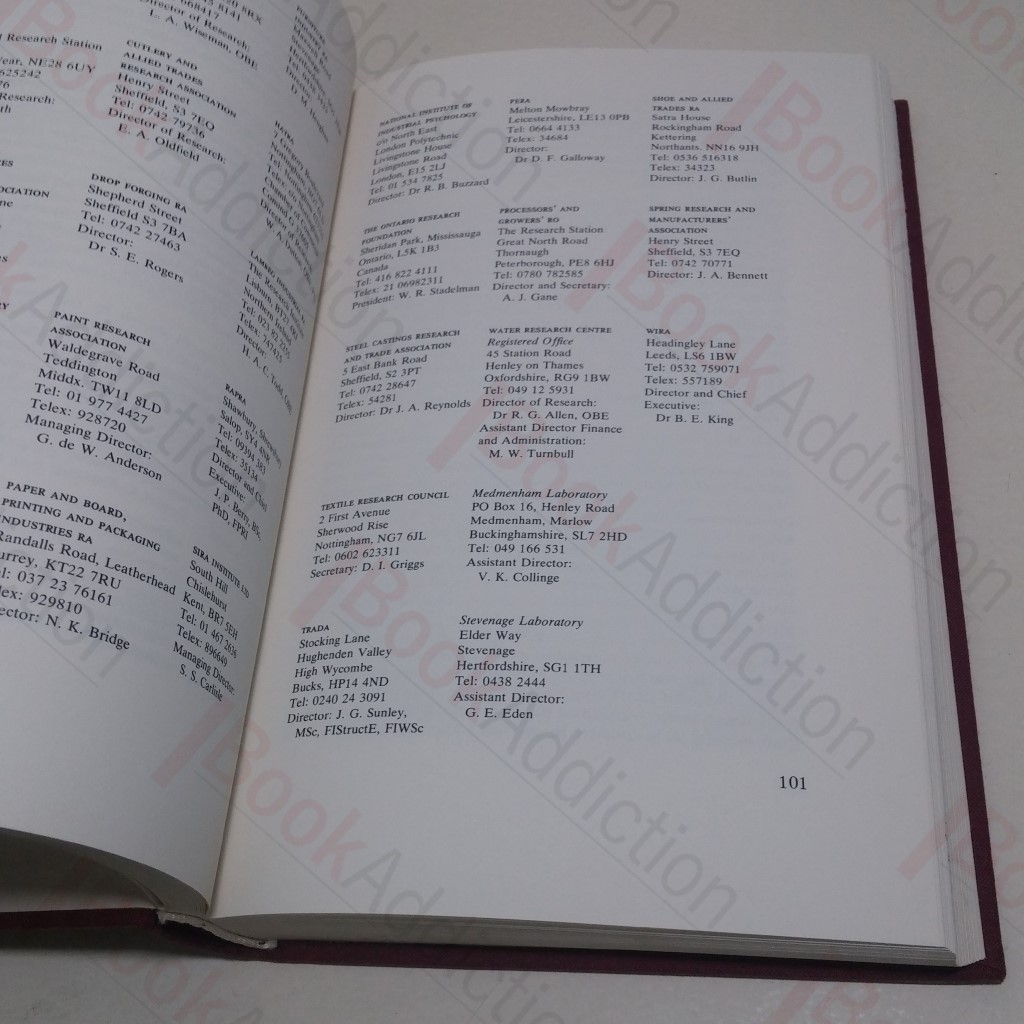 L. A. Wiseman, OBE
Director of Research:
Research Station
NE28 6UY
625242
Research:
CUTLERY AND
ALLIED TRADES
RESEARCH ASSOCIATION
Henry Street
Sheffield, S3 7EQ
Tel: 0742 79736
Director of Research:
E. A. Oldfield
DROP FORGING RA
Shepherd Street
Sheffield S3 7BA
Tel: 0742 27463
Director:
Dr S. E. Rogers
PAINT RESEARCH
ASSOCIATION
Waldegrave Road
Teddington
Middx. TW11 8LD
Tel: 01 977 4427
Telex: 928720
Managing Director:
G. de W. Anderson
PAPER AND BOARD,
PRINTING AND PACKAGING
INDUSTRIES RA
Randalls Road, Leatherhead
urrey, KT22 7RU
el: 037 23 76161
lex: 929810
ector: N. K. Bridge
RAPRA
Shawbury, Shrewsbury
Salop, SY4 4NR
Tel: 09394 383
Telex: 35134
Director and Chief
Executive:
J. P. Berry, BSc,
PhD, FPRI
SIRA INSTITUTE LTD
South Hill
Chislehurst
Kent, BR7 5EH
Tel: 01 467 2636
Telex: 896649
Managing Director:
S. S. Carlisle
NATIONAL INSTITUTE OF
INDUSTRIAL PSYCHOLOGY
c/o North East
London Polytechnic
Livingstone House
Livingstone Road
London, E15 2LJ
Tel: 01 534 7825
Director: Dr R. B. Buzzard
THE ONTARIO RESEARCH
FOUNDATION
Sheridan Park, Mississauga
Ontario, L5K 1B3
Canada
Tel: 416 822 4111
Telex: 21 06982311
President: W. R. Stadelman
STEEL CASTINGS RESEARCH
AND TRADE ASSOCIATION
5 East Bank Road
Sheffield, S2 3PT
Tel: 0742 28647
Telex: 54281
Director: Dr J. A. Reynolds
TEXTILE RESEARCH COUNCIL
2 First Avenue
Sherwood Rise
Nottingham, NG7 6JL
Tel: 0602 623311
Secretary: D. I. Griggs
TRADA
Stocking Lane
Hughenden Valley
High Wycombe
Bucks, HP14 4ND
Tel: 0240 24 3091
Director: J. G. Sunley,
MSc, FIStructE, FIWSc
PERA
Melton Mowbray
Leicestershire, LE13 0PB
Tel: 0664 4133
Telex: 34684
Director:
Dr D. F. Galloway
PROCESSORS' AND
GROWERS' RO
The Research Station
Great North Road
Thornaugh
Peterborough, PE8 6HJ
Tel: 0780 782585
Director and Secretary:
A. J. Gane
WATER RESEARCH CENTRE
Registered Office
45 Station Road
Henley on Thames
Oxfordshire, RG9 1BW
Tel: 049 12 5931
Director of Research:
Dr R. G. Allen, OBE
Assistant Director Finance
and Administration:
M. W. Turnbull
Medmenham Laboratory
PO Box 16, Henley Road
Medmenham, Marlow
Buckinghamshire, SL7 2HD
Tel: 049 166 531
Assistant Director:
V. K. Collinge
Stevenage Laboratory
Elder Way
Stevenage
Hertfordshire, SG1 1TH
Tel: 0438 2444
Assistant Director:
G. E. Eden
SHOE AND ALLIED
TRADES RA
Satra House
Rockingham Road
Kettering
Northants. NN16 9JH
Tel: 0536 516318
Telex: 34323
Director: J. G. Butlin
SPRING RESEARCH AND
MANUFACTURERS'
ASSOCIATION
Henry Street
Sheffield, S3 7EQ
Tel: 0742 70771
Director: J. A. Bennett
WIRA
Headingley Lane
Leeds, LS6 1BW
Tel: 0532 759071
Telex: 557189
Director and Chief
Executive:
Dr B. E. King
101
BookAddiction